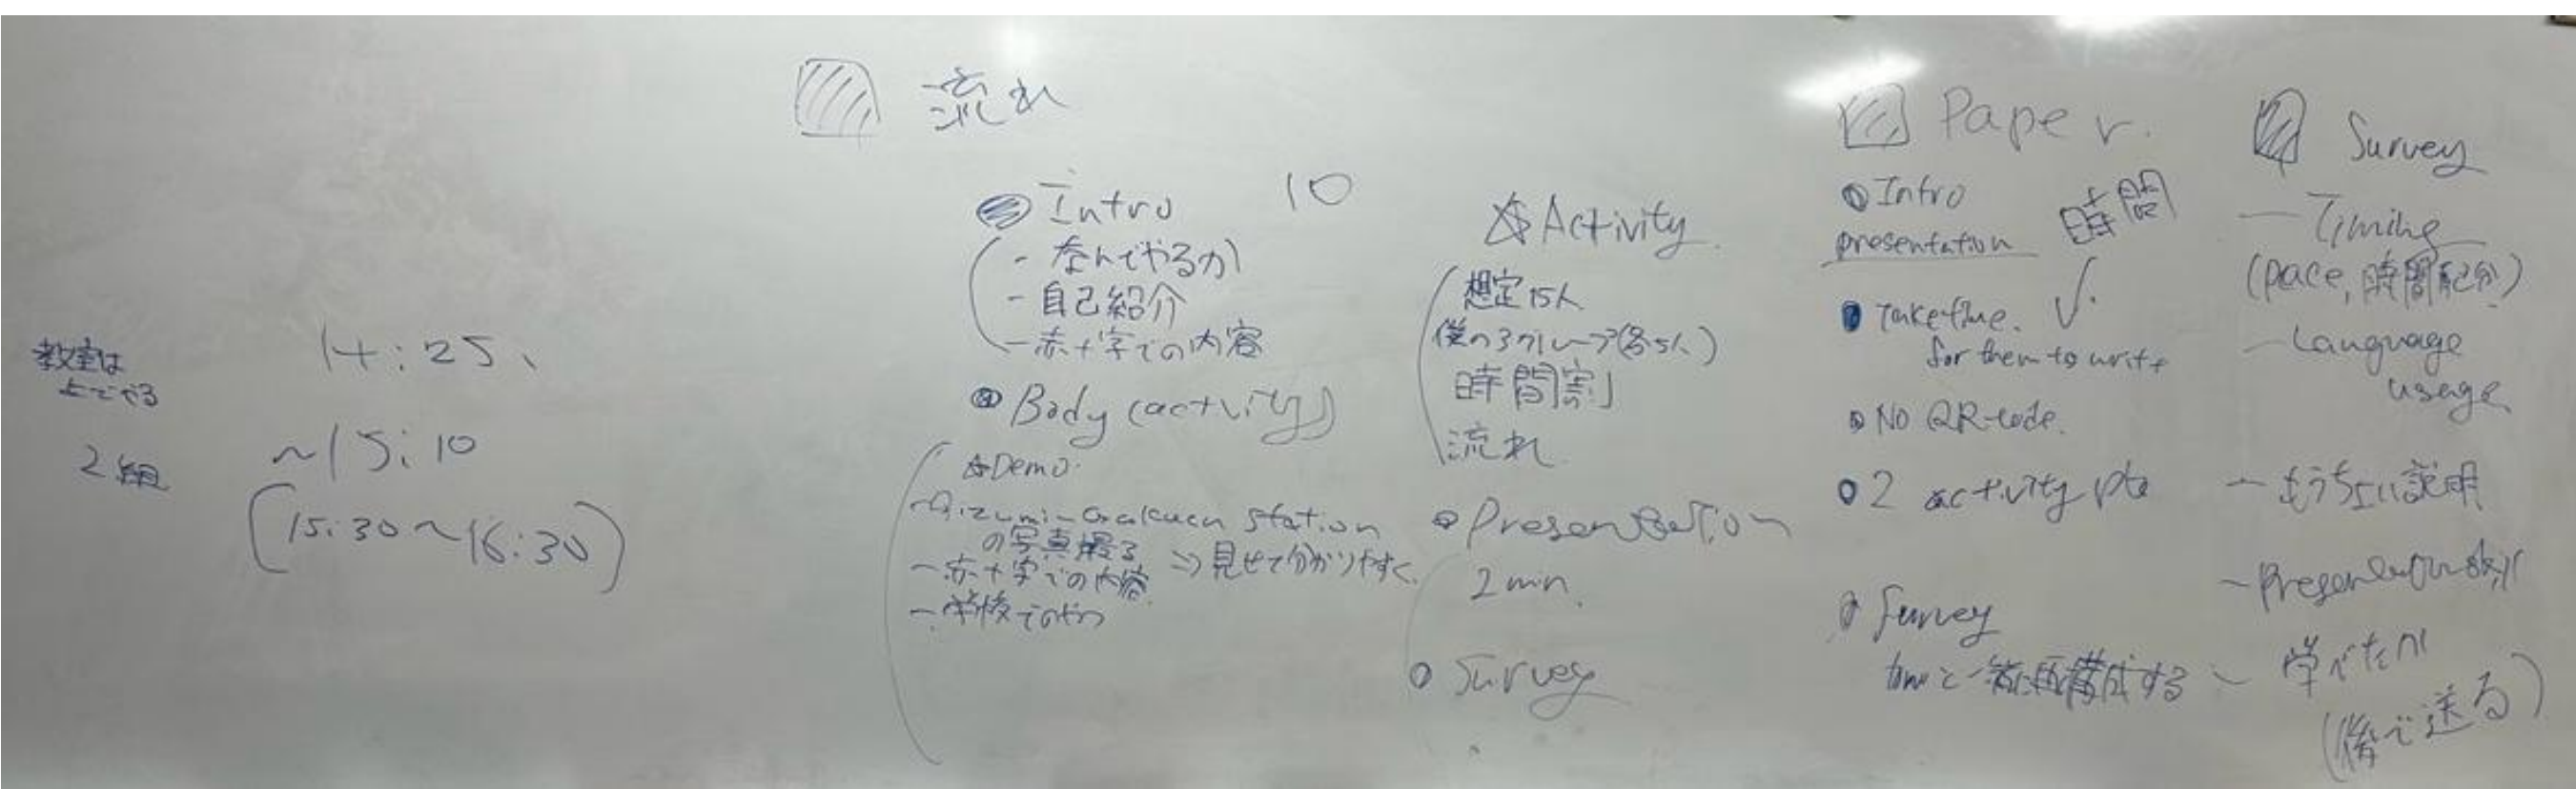 教室は
上でやる
2組
14:25、
~15:10
(15:30~16:30)
流れ
Intro 10
- なんでやるか
- 自己紹介
- 赤十字での内容
Body (activity)
☆Demo.
Station
の写真撮る
- 赤十字での内容 ⇒ 見せて分かりやすく
- 学校でのやつ
☆Activity
想定15人
3グループ(各5人)
時間割
流れ
Presentation
2 min.
Survey
Paper.
Intro
presentation 時間
Take time. ✓
for them to write
No QR-code.
2 activity pts
Survey
再構成する
Survey
- Timing
(pace, 時間配分)
- Language
usage
- もうちょい説明
- Presentation skill
- 学べたか
(後で送る)